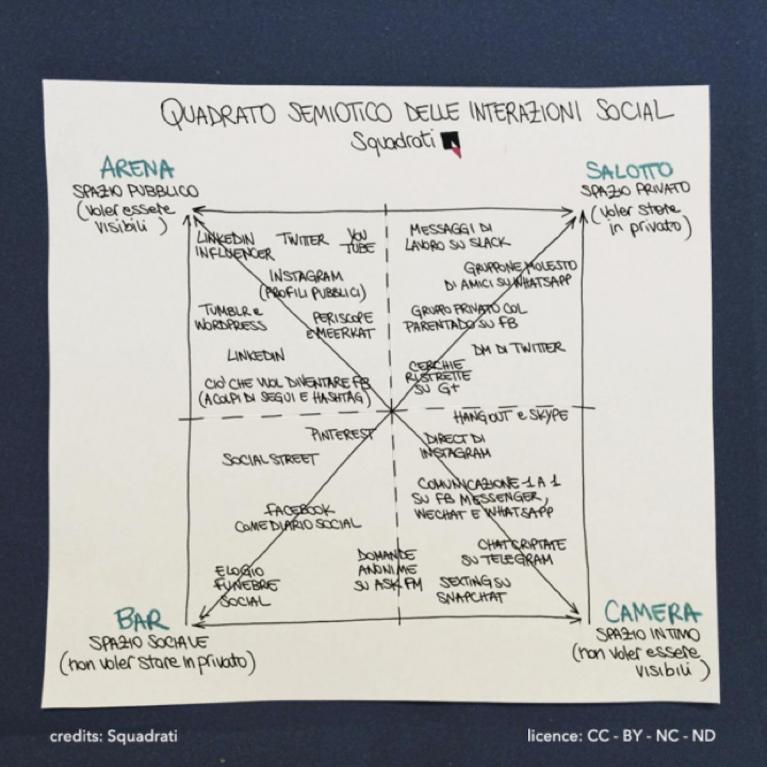 QUADRATO SEMIOTICO DELLE INTERAZIONI SOCIAL
Squadrati
ARENA
SPAZIO PUBBLICO
(voler essere
visibili)
SALOTTO
SPAZIO PRIVATO
(voler stare
in privato)
LINKEDIN
INFLUENCER
TWITTER
YOU
TUBE
INSTAGRAM
(PROFILI PUBBLICI)
TUMBLR e
WORDPRESS
PERISCOPE
e MEERKAT
LINKEDIN
CIO' CHE VUOL DIVENTARE FB
(A COLPI DI SEGUI E HASHTAG)
MESSAGGI DI
LAVORO SU SLACK
GRUPPONE MOLESTO
DI AMICI SU WHATSAPP
GRUPPO PRIVATO COL
PARENTADO SU FB
DM DI TWITTER
CERCHIE
RISTRETTE
SU G+
PINTEREST
SOCIAL STREET
FACEBOOK
COME DIARIO SOCIAL
ELOGIO
FUNEBRE
SOCIAL
DOMANDE
ANONIME
SU ASK FM
HANGOUT e SKYPE
DIRECT DI
INSTAGRAM
COMUNICAZIONE 1 A 1
SU FB MESSENGER,
WECHAT E WHATSAPP
CHAT CRIPTATE
SU TELEGRAM
SEXTING SU
SNAPCHAT
BAR
SPAZIO SOCIALE
(non voler stare in privato)
CAMERA
SPAZIO INTIMO
(non voler essere
visibili)
credits: Squadrati
licence: CC - BY - NC - ND